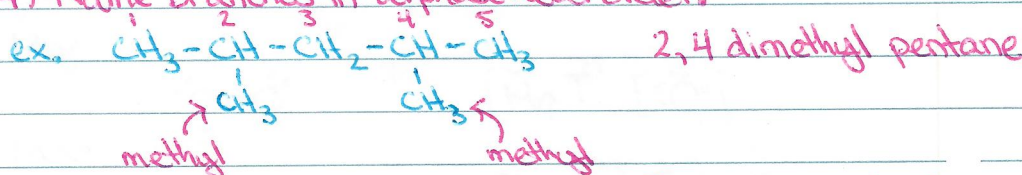 1 2 3 4 5
ex. CH₃-CH-CH₂-CH-CH₃ 2,4 dimethyl pentane
CH₃ CH₃
methyl methyl